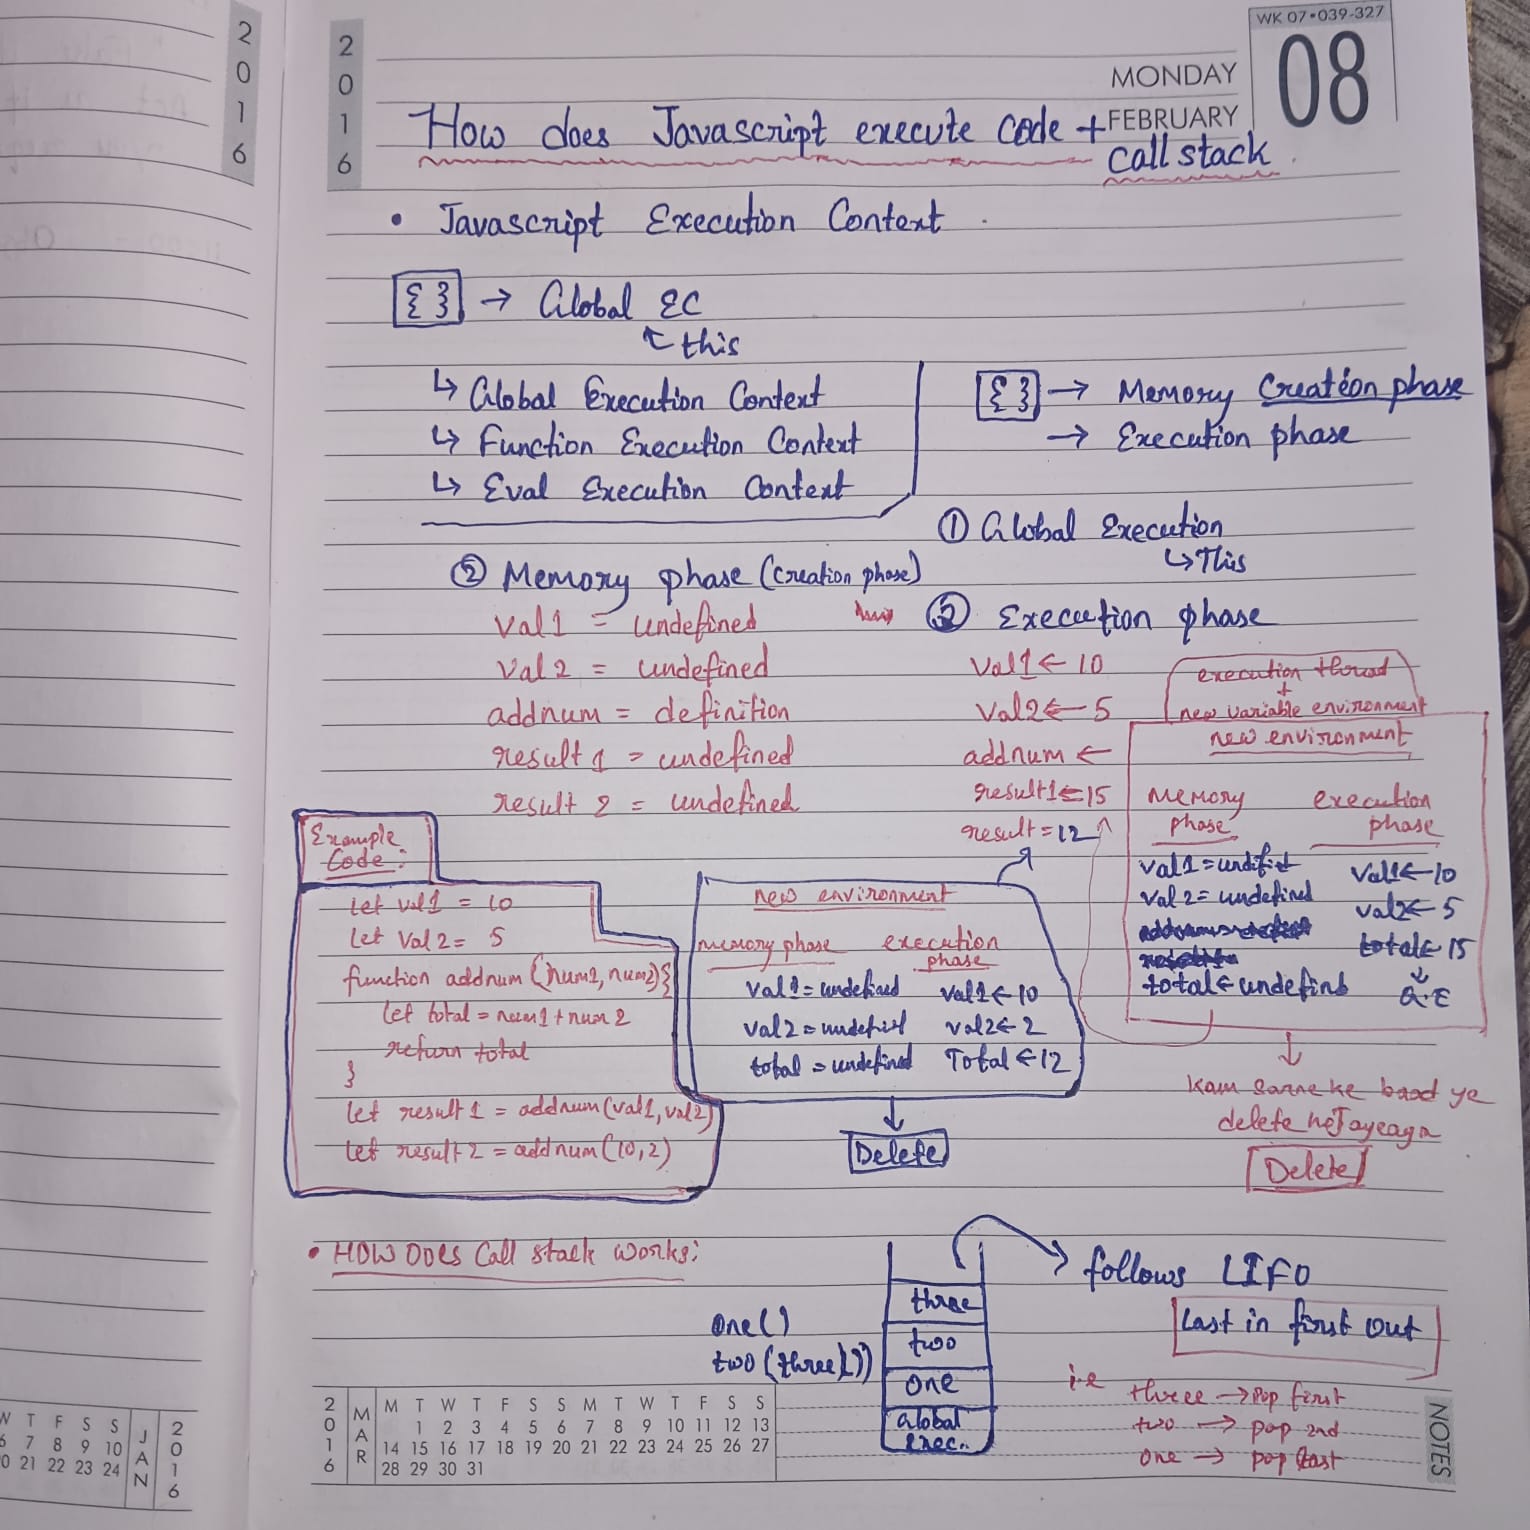 2016
2016
WK 07•039-327
MONDAY
08
FEBRUARY
How does Javascript execute code +
call stack
• Javascript Execution Context
{ } → Global EC
↖ this
↳ Global Execution Context
↳ Function Execution Context
↳ Eval Execution Context
{ } → Memory Creation phase
→ Execution phase
① Global Execution
↳ This
② Memory phase (creation phase)
val1 = undefined
val2 = undefined
addnum = definition
result 1 = undefined
result 2 = undefined
③ Execution phase
val1 ← 10
val2 ← 5
addnum ←
result1 ← 15
result = 12
execution thread
+
new variable environment
new environment
memory phase
execution phase
val1 = undifid
val 2 = undefined
total ← undefind
val1 ← 10
val2 ← 5
total ← 15
G.E
kaam karne ke baad ye
delete hoJayeaga
Delete
Example
Code :
let val1 = 10
let val2 = 5
function addnum (num1, num2) {
let total = num1 + num2
return total
}
let result 1 = addnum(val1, val2)
let result 2 = addnum(10,2)
new environment
memory phase
execution phase
val1 = undefined val1 ← 10
val2 = undefind val2 ← 2
total = undefined Total ← 12
Delete
• HOW DOEs Call stack works:
one()
two (three())
three
two
one
Global
Exec..
follows LIFO
Last in first out
i.e three → pop first
two → pop 2nd
one → pop last
2016 MAR
M T W T F S S M T W T F S S
1 2 3 4 5 6 7 8 9 10 11 12 13
14 15 16 17 18 19 20 21 22 23 24 25 26 27
28 29 30 31
NOTES
W T F S S
6 7 8 9 10
0 21 22 23 24
JAN 2016